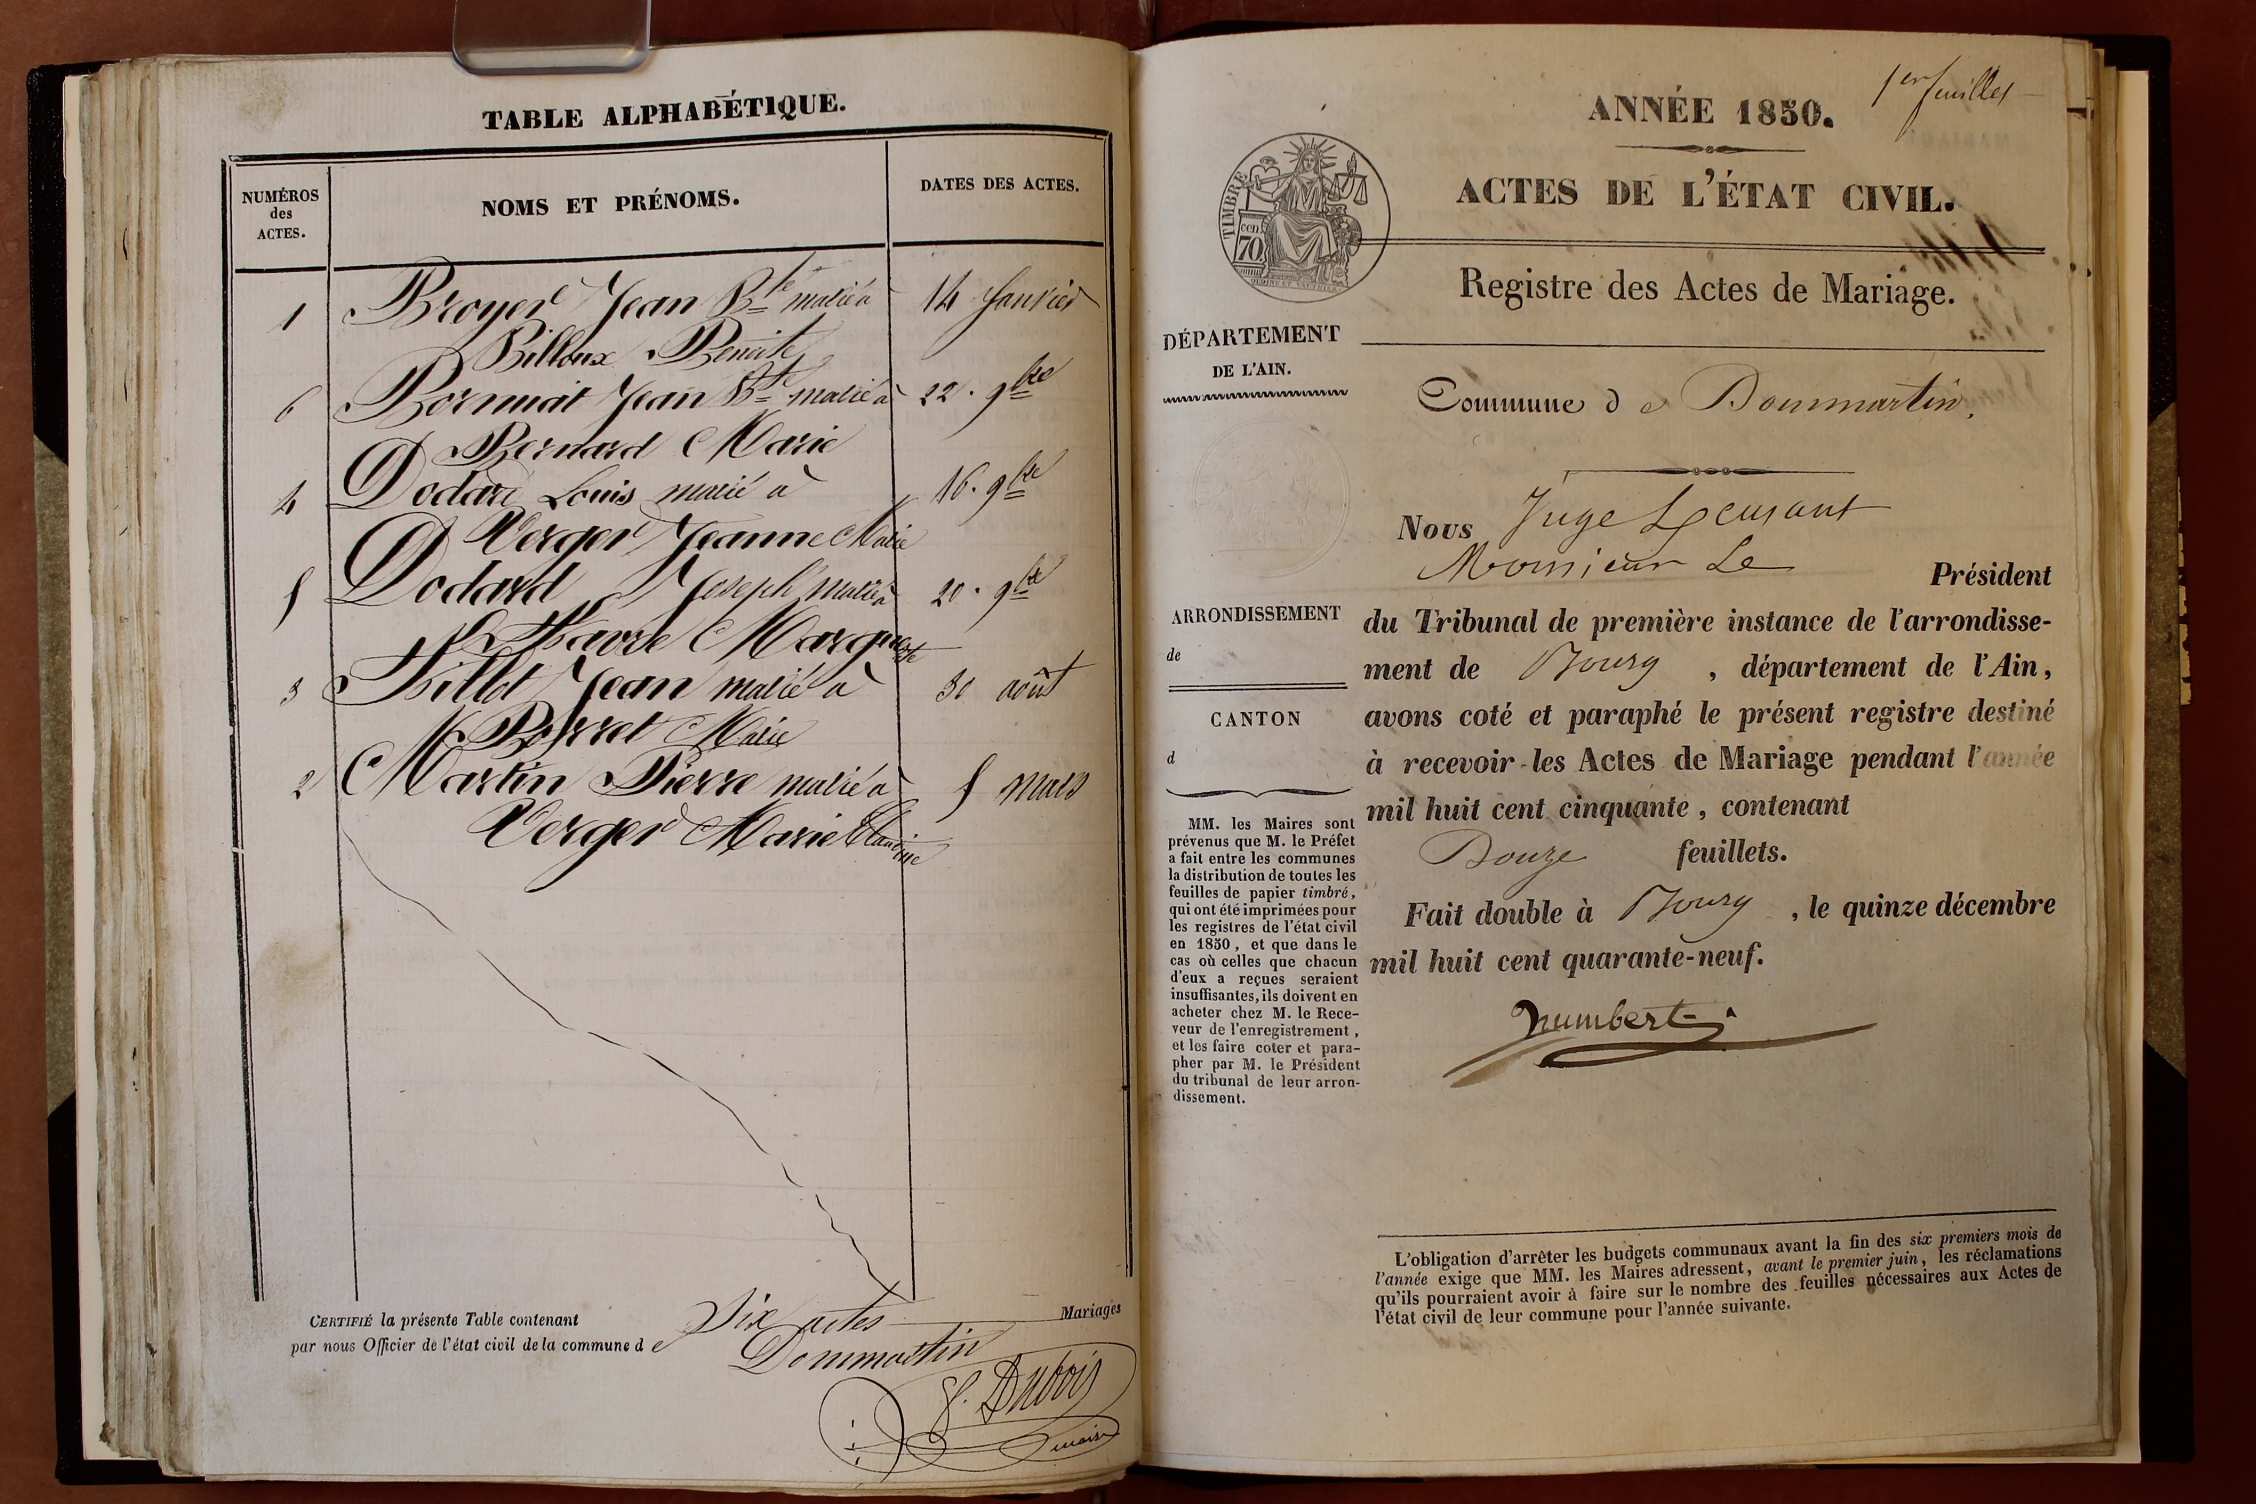 TABLE ALPHABÉTIQUE.
NUMÉROS
des
ACTES.
NOMS ET PRÉNOMS.
DATES DES ACTES.
1 Broyer Jean Bte marié à 14 Janvier
Billoux Benoite
6 Bornuat Jean Bte marié à 22. 9bre
Bernard Marie
4 Dodard Louis marié à 16. 9bre
Verger Jeanne Marie
5 Dodard Joseph marié à 20. 9bre
Havre Marguerite
3 Billot Jean marié à 30 août
Perret Marie
2 Martin Pierre marié à 5 mars
Verger Marie Claudine
CERTIFIÉ la présente Table contenant Six actes Mariages
par nous Officier de l'état civil de la commune d e Dommartin
Dubois
maire
1er feuillet
ANNÉE 1850.
ACTES DE L'ÉTAT CIVIL.
TIMBRE
70 cen
Registre des Actes de Mariage.
DÉPARTEMENT
DE L'AIN.
Commune d e Dommartin.
ARRONDISSEMENT
de
CANTON
d
MM. les Maires sont
prévenus que M. le Préfet
a fait entre les communes
la distribution de toutes les
feuilles de papier timbré,
qui ont été imprimées pour
les registres de l'état civil
en 1850, et que dans le
cas où celles que chacun
d'eux a reçues seraient
insuffisantes, ils doivent en
acheter chez M. le Rece-
veur de l'enregistrement,
et les faire coter et para-
pher par M. le Président
du tribunal de leur arron-
dissement.
Nous Juge
Monsieur Le Président
du Tribunal de première instance de l'arrondisse-
ment de Bourg, département de l'Ain,
avons coté et paraphé le présent registre destiné
à recevoir les Actes de Mariage pendant l'année
mil huit cent cinquante, contenant
Douze feuillets.
Fait double à Bourg, le quinze décembre
mil huit cent quarante-neuf.
humbert
L'obligation d'arrêter les budgets communaux avant la fin des six premiers mois de
l'année exige que MM. les Maires adressent, avant le premier juin, les réclamations
qu'ils pourraient avoir à faire sur le nombre des feuilles nécessaires aux Actes de
l'état civil de leur commune pour l'année suivante.